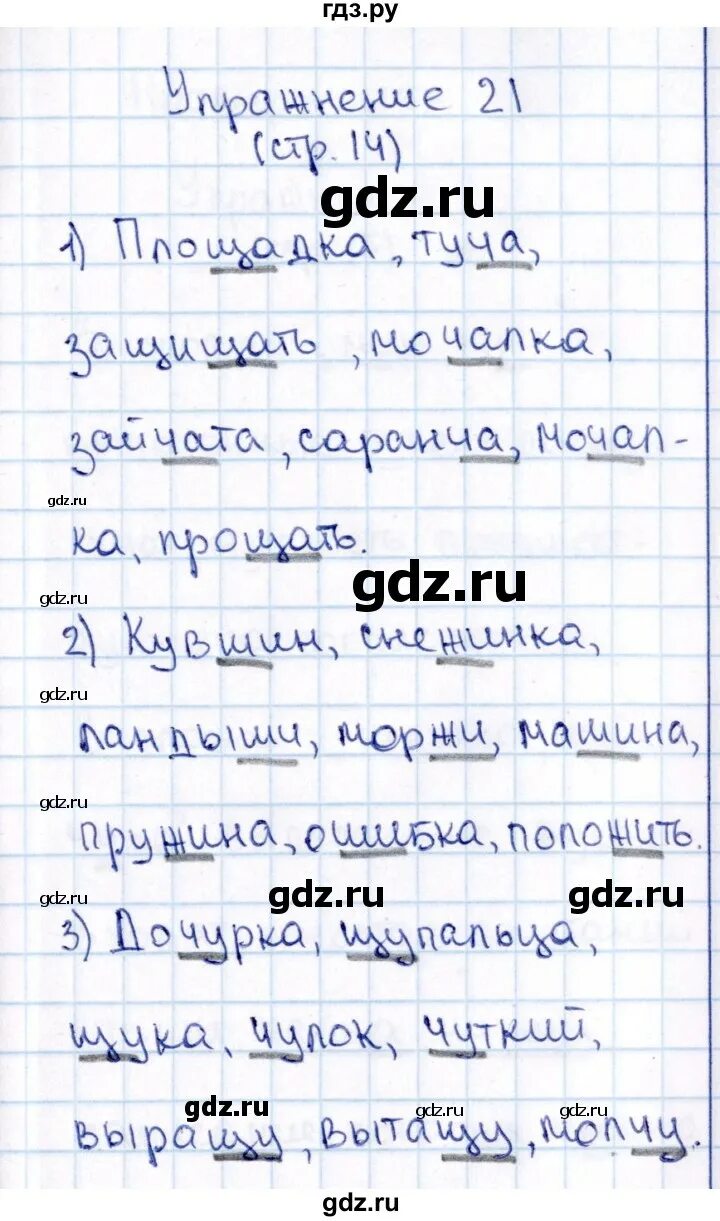 гдз.ру
Упражнение 21
(стр. 14)
gdz.ru
1) Площадка, туча,
защищать, мочалка,
зайчата, саранча, мочал-
gdz.ru
ка, прощать.
gdz.ru
gdz.ru
2) Кувшин, снежинка,
gdz.ru
ландыши, моржи, машина,
gdz.ru
пружина, ошибка, положить.
gdz.ru
gdz.ru
gdz.ru
3) Дочурка, щупальца,
щука, чулок, чуткий,
gdz.ru
gdz.ru
gdz.ru
выращу, вытащу, молчу.
gdz.ru